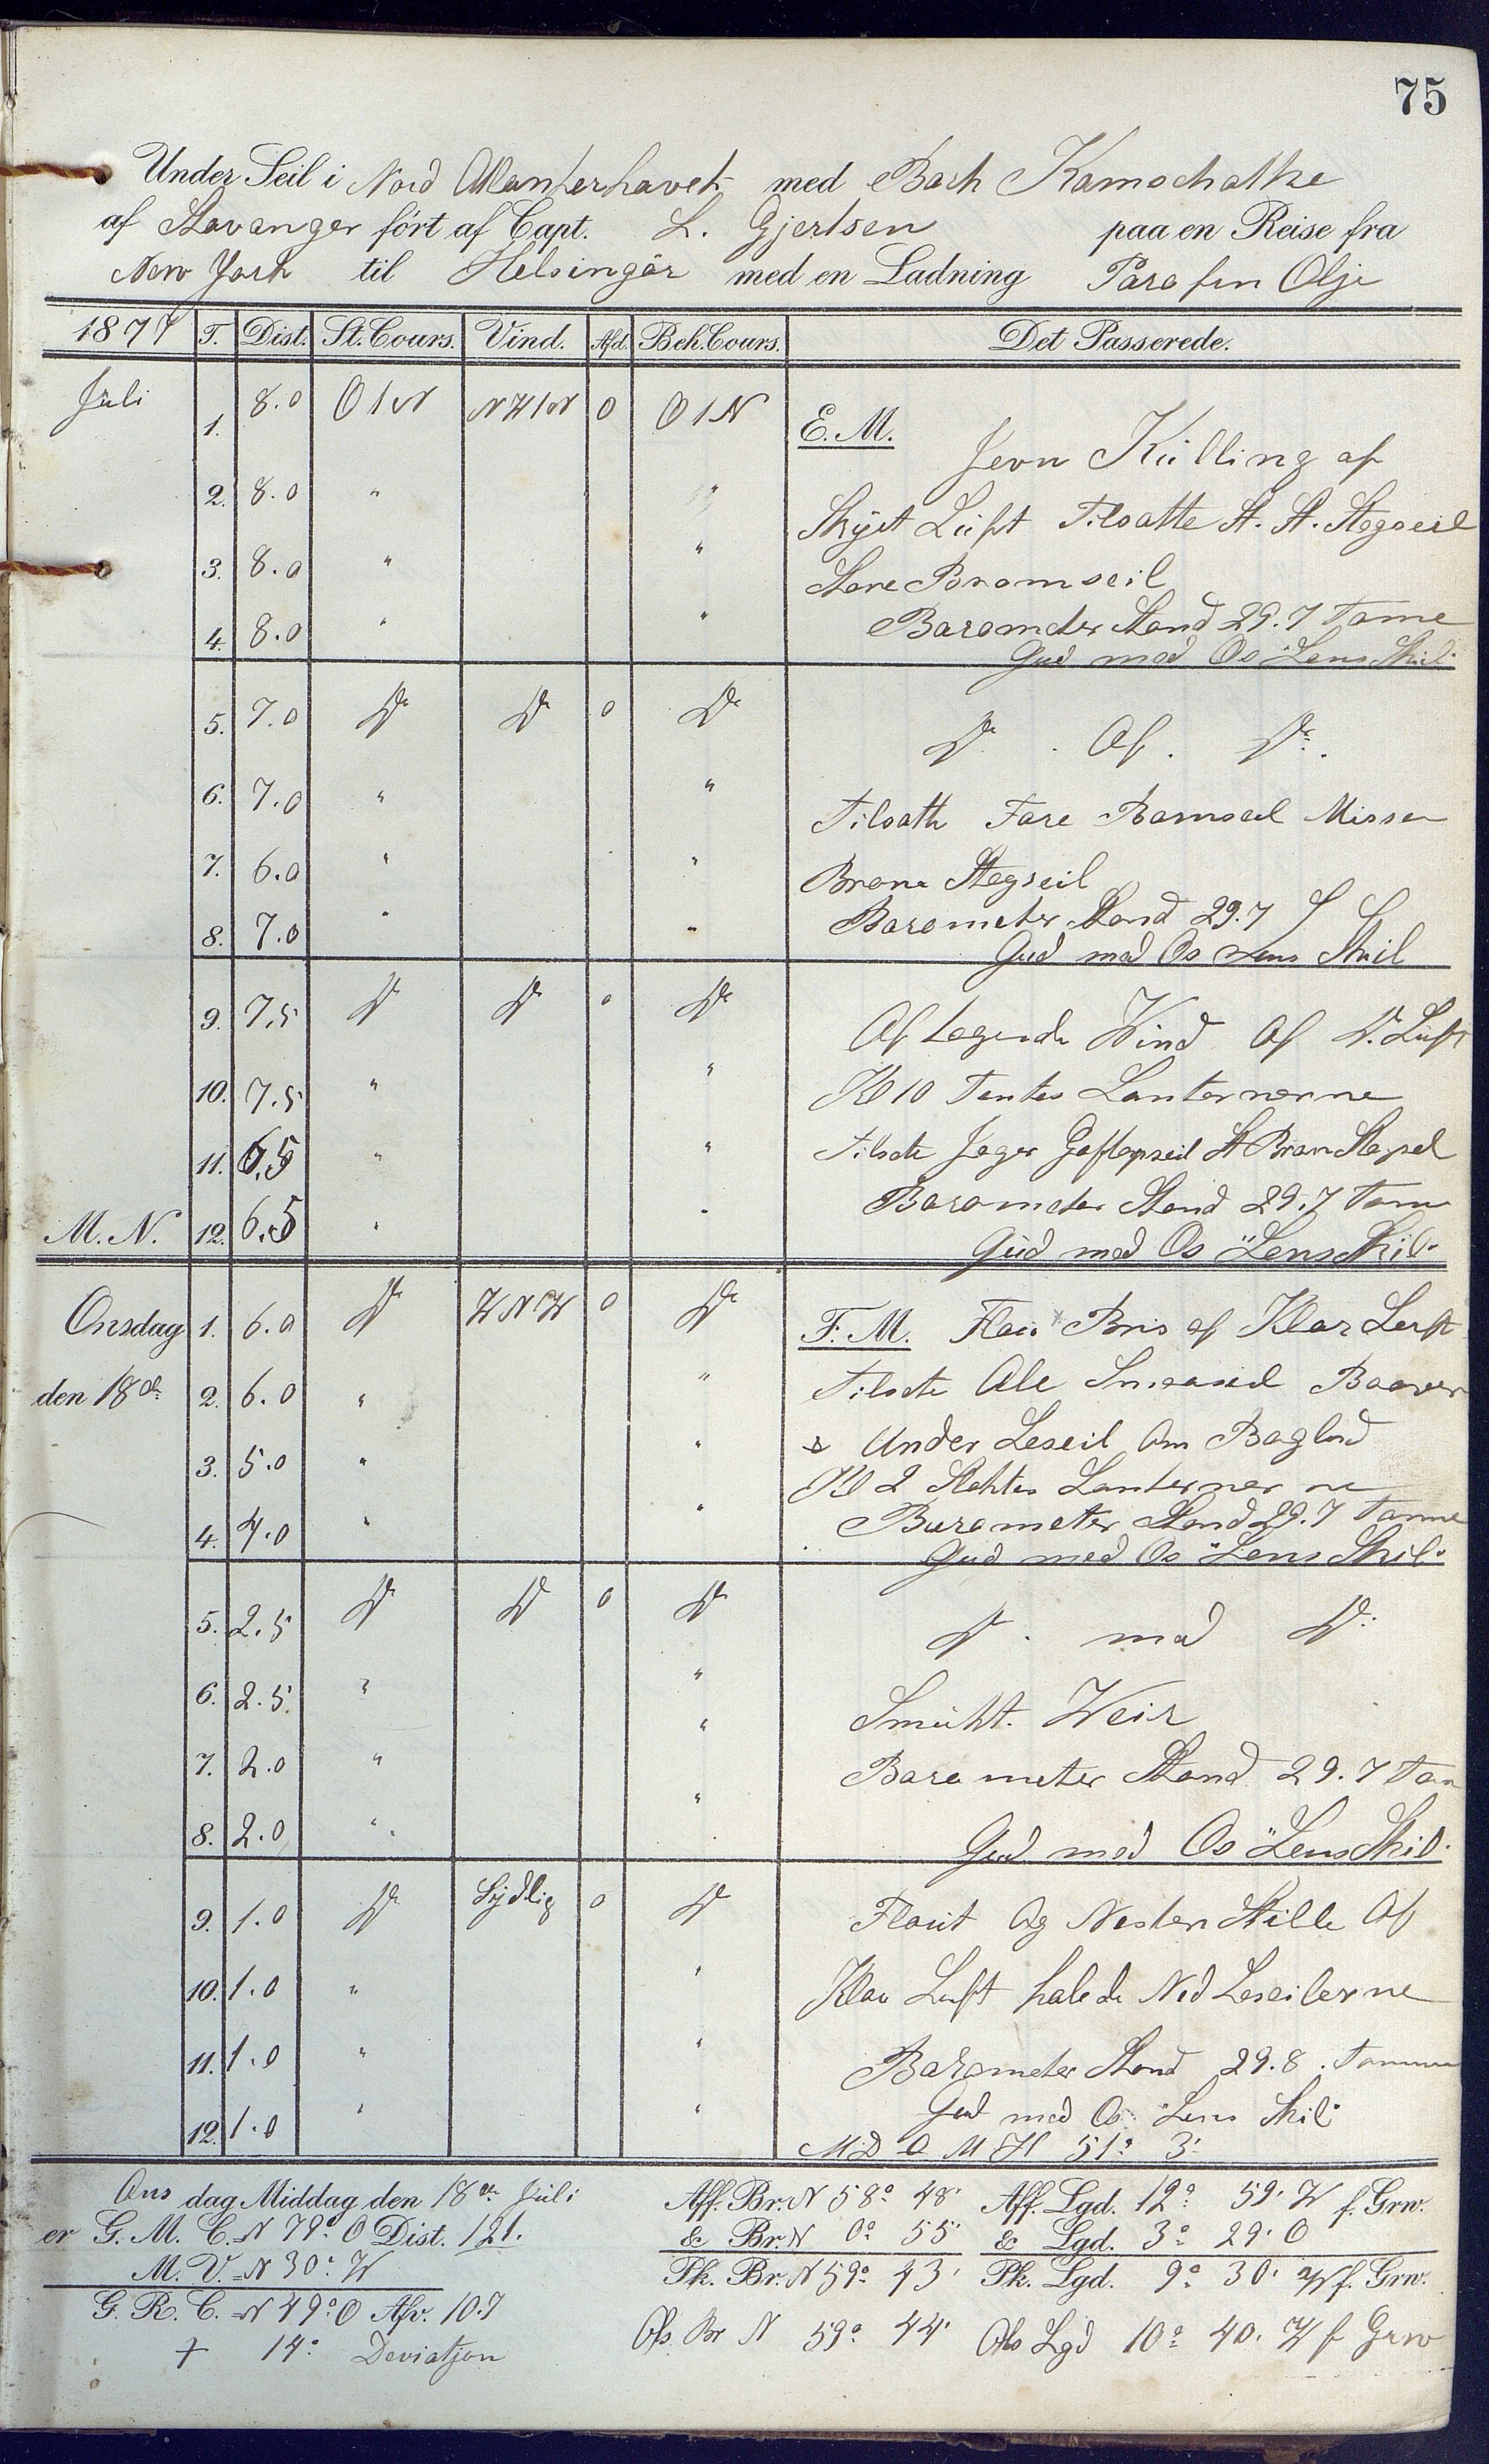 75
Under Seil i Nord Atlanterhavet med Bark Kamschatka
af Stavanger ført af Capt. L. Gjertsen paa en Reise fra
New York til Helsingör med en Ladning Parafin Olje
1877 T. Dist. St. Cours. Vind. Afd. Beh. Cours. Det Passerede.
Juli 1. 8.0 O1N NW1N 0 O1N E.M. Jevn Kulling af
2. 8.0 " " Skyet Luft Tilsatte St. St. Stagseil
3. 8.0 " " Store Bramseil
4. 8.0 " " Barometer Stand 29.7 Tome
Gud med Os Lens Skib
5. 7.0 Do Do 0 Do Do . Af . Do.
6. 7.0 " " Tilsatte Fore Bramseil Missen
7. 6.0 " " Bram Stagseil
8. 7.0 " " Barometer Stand 29.7
Gud med Os Lens Skib
9. 7.5 Do Do 0 Do Aftagende Wind Af Do. Luft
10. 7.5 " " Kl 10 Tentes Lanternerne
11. 6.5 " " Tilsatte Jager Gaftopseil St Bram Stagseil
M.N. 12. 6.5 " " Barometer Stand 29.7 Tom
Gud med Os Lens Skib
Onsdag 1. 6.0 Do WNW 0 Do F.M. Flau Bris af Klar Luft
den 18de 2. 6.0 " " Tilsatte Ale Smaaseil Baaven
3. 5.0 " " & Under Leseil Om Bagbord
Kl 2 Slektes Lanternerne
4. 4.0 " " Barometer Stand 29.7 Tomme
Gud med Os Lens Skib
5. 2.5 Do Do 0 Do Do . med Do.
6. 2.5 " " Smukt. Weir
7. 2.0 " " Barometer Stand 29.7 Tom
8. 2.0 " " Gud med Os Lens Skib
9. 1.0 Do Sydlig 0 Do Flaut Og Nesten Stille Af
10. 1.0 " " Klar Luft halede Ned Leseilerne
11. 1.0 " " Barometer Stand 29.8 Tomme
12. 1.0 " " Gud med Os Lens Skib
51° 3'
Onsdag Middag den 18de Juli Aff. Br. N 58° 48' Aff. Lgd. 12° 59' W f. Grw.
er G. M. C. N 79° O Dist. 121. & Br. N 0° 55' & Lgd. 3° 29' O
M. V. N 30° W Pk. Br. N 59° 43' Pk. Lgd. 9° 30' W f. Grw.
G. R. C. N 49° O Afv. 107
Obs. Br N 59° 44' Obs Lgd 10° 40' W f Grw
+ 14° Deviatjon